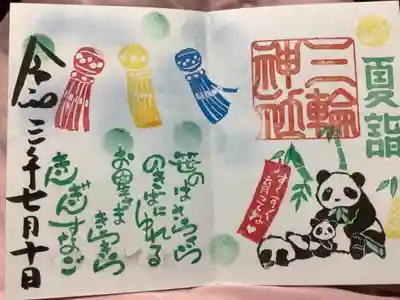 夏詣
三輪
神社
すくすく育ってね♥
笹のはさらさら
のきばにゆれる
お星さま
きらきら
きんぎんすなご
令和三年七月十日